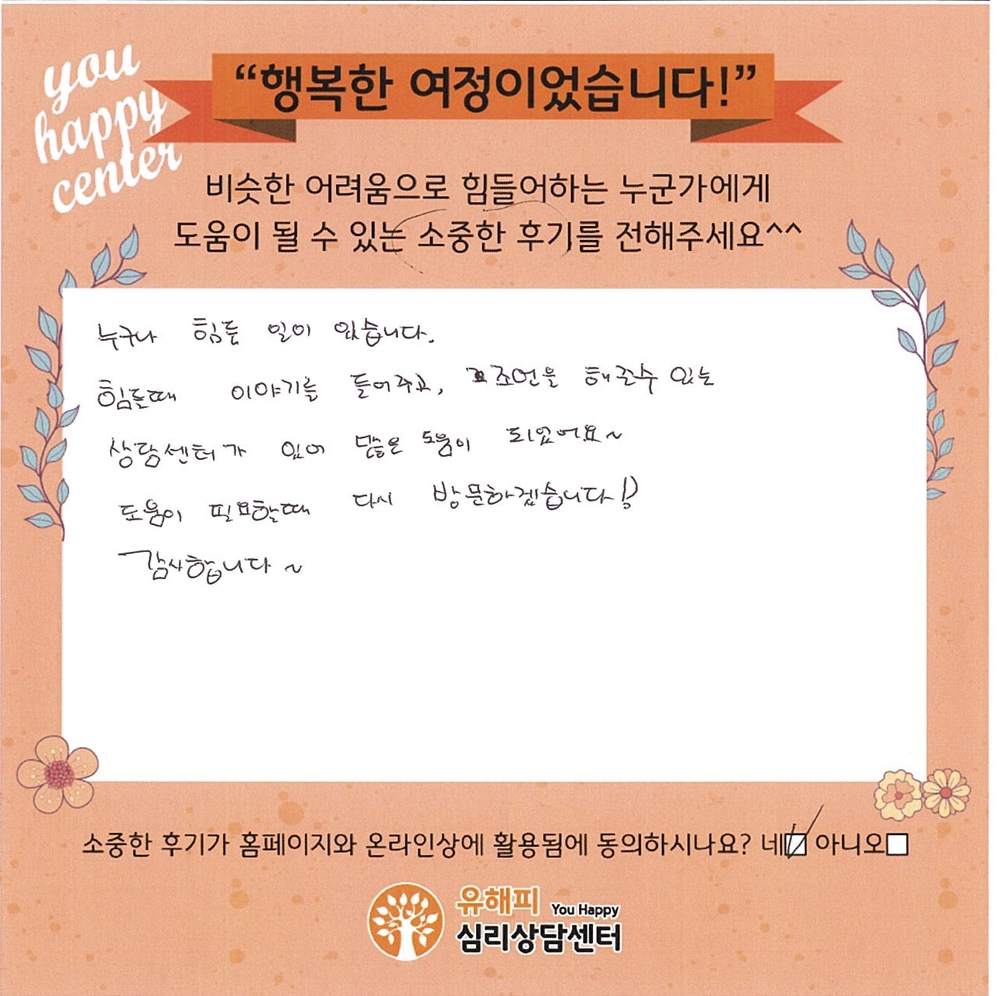 you
happy
center
“행복한 여정이었습니다!”
비슷한 어려움으로 힘들어하는 누군가에게
도움이 될 수 있는 소중한 후기를 전해주세요^^
누구나 힘든 일이 있습니다.
힘들때 이야기를 들어주고, 조언을 해줄수 있는
상담센터가 있어 많은 도움이 되었어요~
도움이 필요할때 다시 방문하겠습니다!)
감사합니다~
소중한 후기가 홈페이지와 온라인상에 활용됨에 동의하시나요? 네☑ 아니오☐
유해피 You Happy
심리상담센터